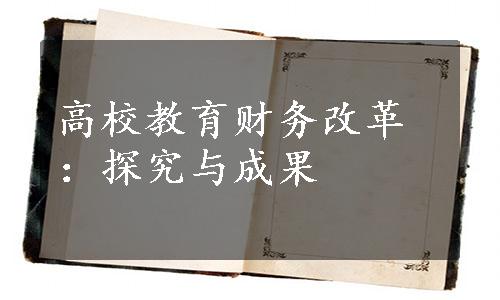 高校教育财务改革
：探究与成果